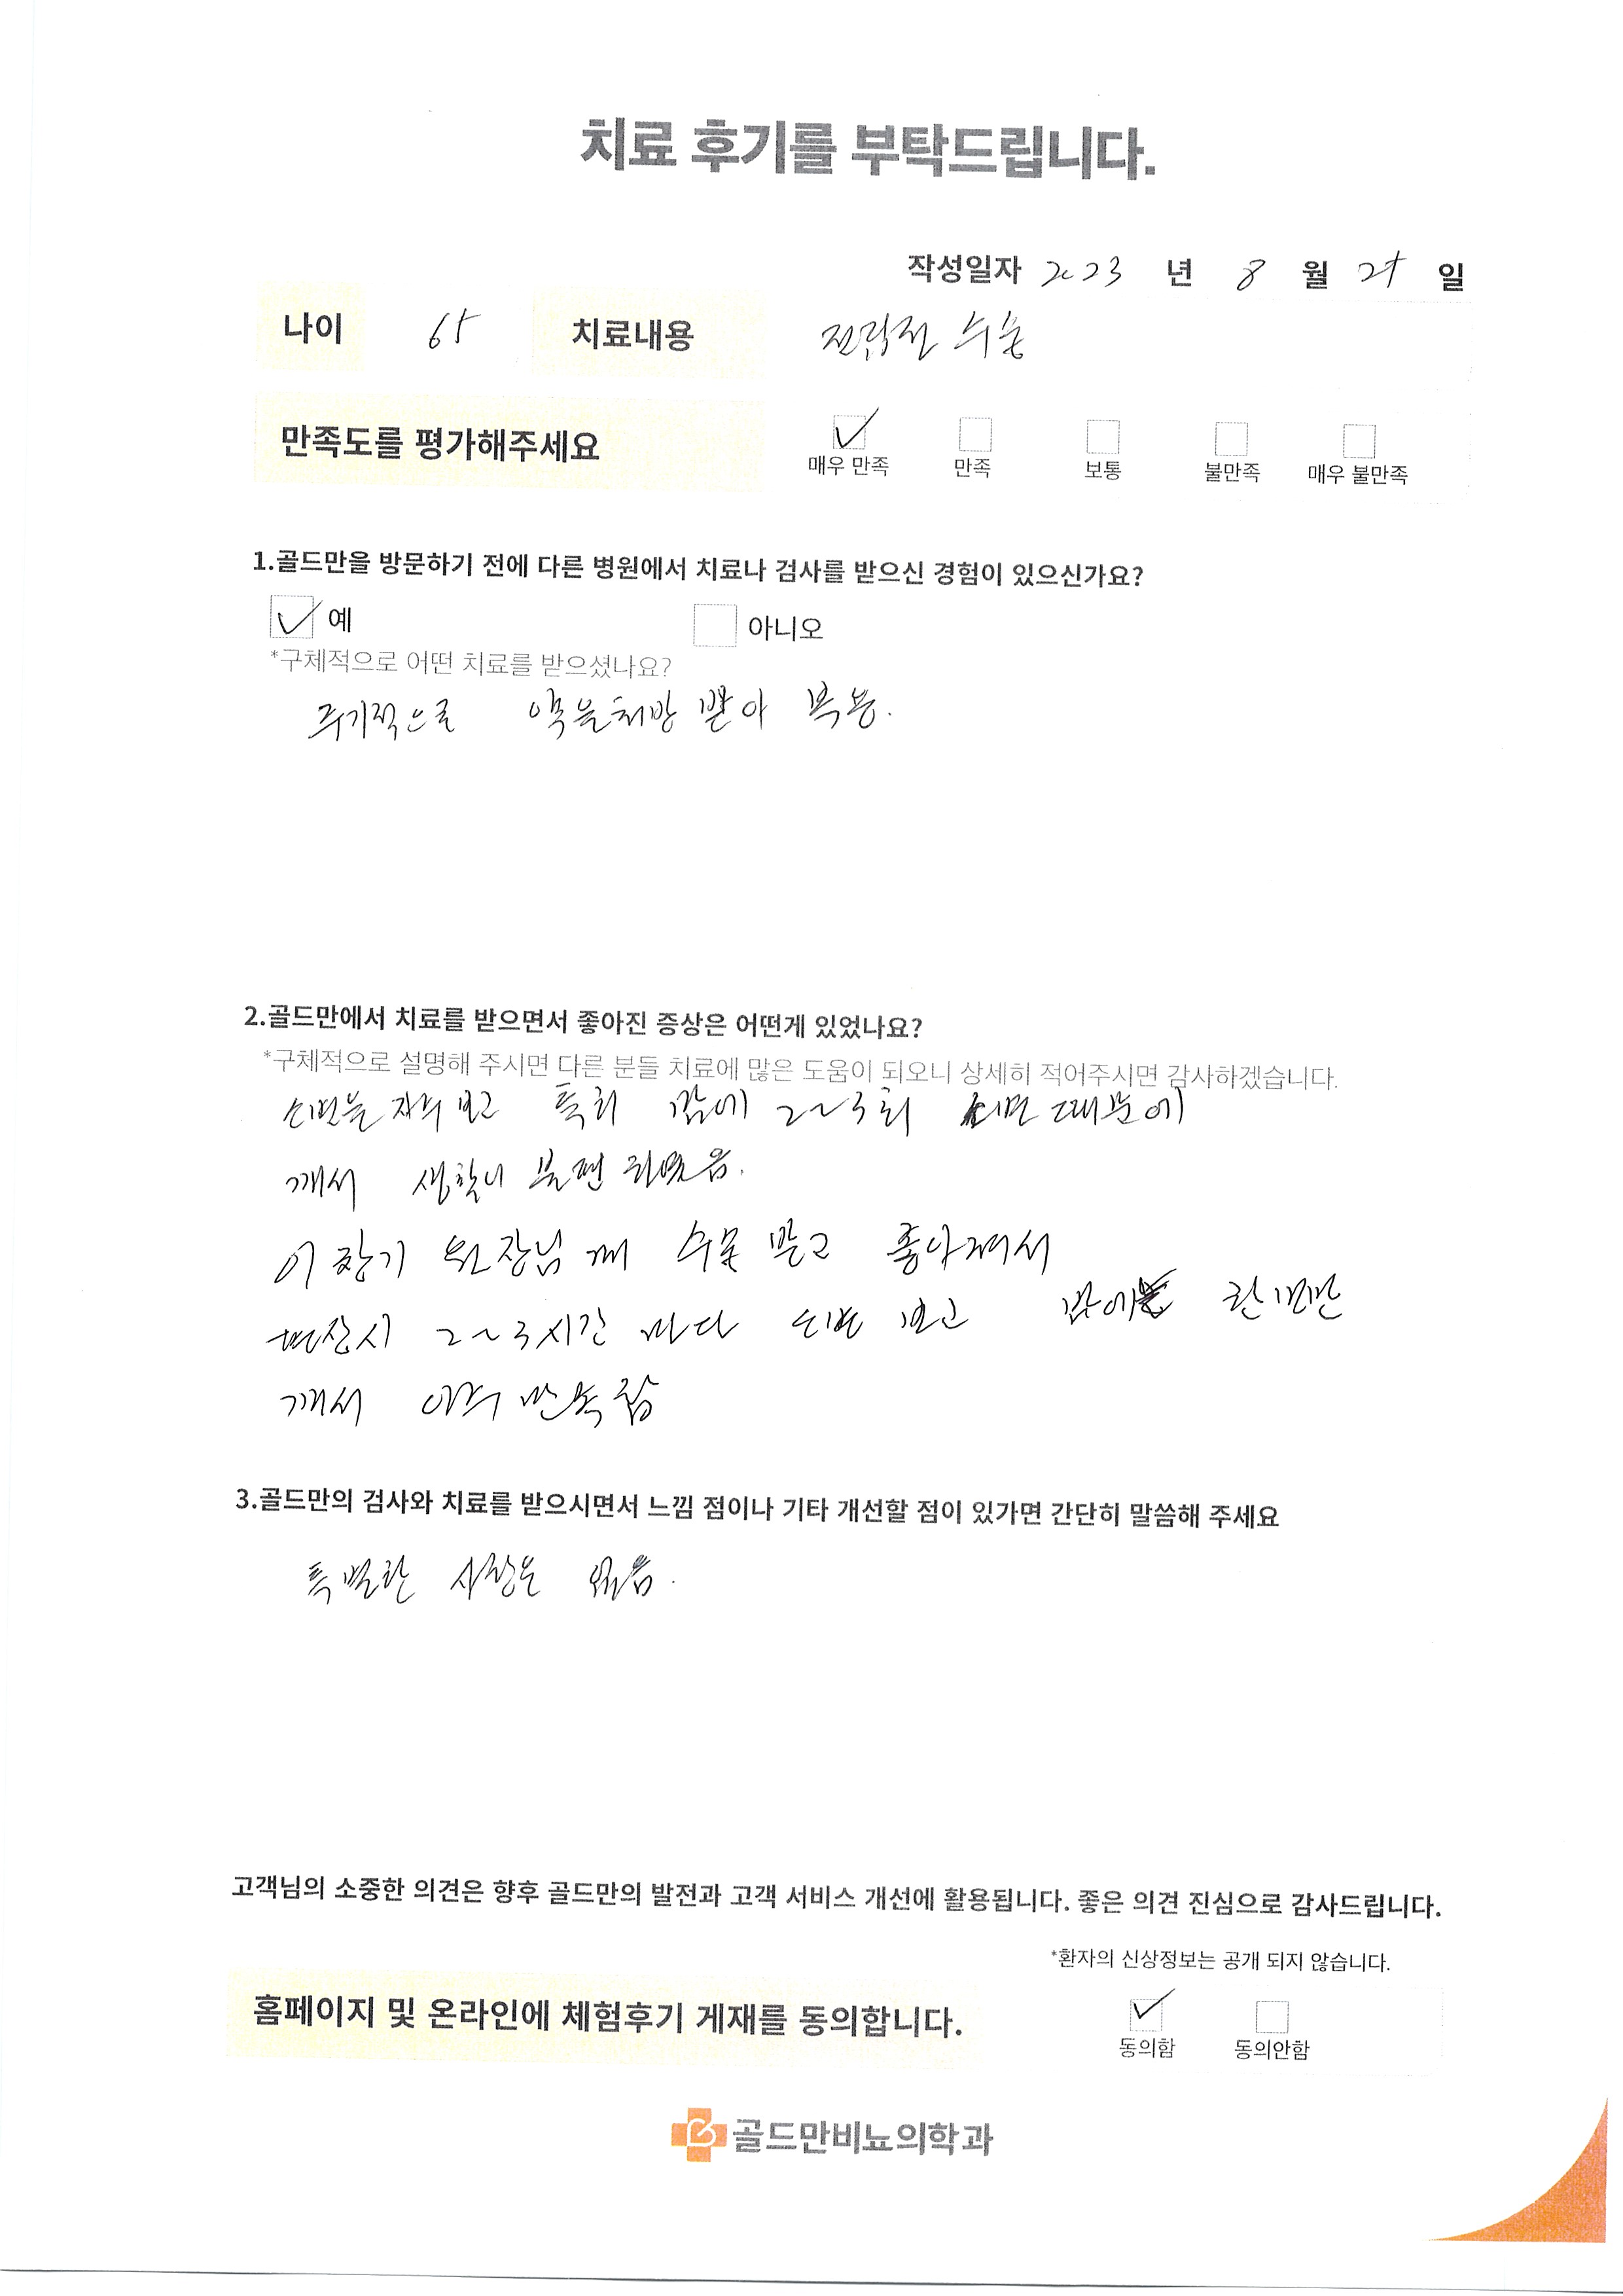 치료 후기를 부탁드립니다.
작성일자 2023 년 8 월 일
나이 65 치료내용 전립선 수술
만족도를 평가해주세요
매우 만족 만족 보통 불만족 매우 불만족
1.골드만을 방문하기 전에 다른 병원에서 치료나 검사를 받으신 경험이 있으신가요?
예 아니오
*구체적으로 어떤 치료를 받으셨나요?
주기적으로 약을 처방 받아 복용.
2.골드만에서 치료를 받으면서 좋아진 증상은 어떤게 있었나요?
*구체적으로 설명해 주시면 다른 분들 치료에 많은 도움이 되오니 상세히 적어주시면 감사하겠습니다.
소변을 자주 보고 특히 밤에 2~3회 소변 때문에
깨서 생활이 불편 하였음.
이창기 원장님께 수술 받고 좋아져서
2~3시간 마다 소변 보고 밤에 한번만
깨서 아주 만족함
3.골드만의 검사와 치료를 받으시면서 느낌 점이나 기타 개선할 점이 있가면 간단히 말씀해 주세요
특별한 사항은 없음.
고객님의 소중한 의견은 향후 골드만의 발전과 고객 서비스 개선에 활용됩니다. 좋은 의견 진심으로 감사드립니다.
*환자의 신상정보는 공개 되지 않습니다.
홈페이지 및 온라인에 체험후기 게재를 동의합니다.
동의함 동의안함
골드만비뇨의학과